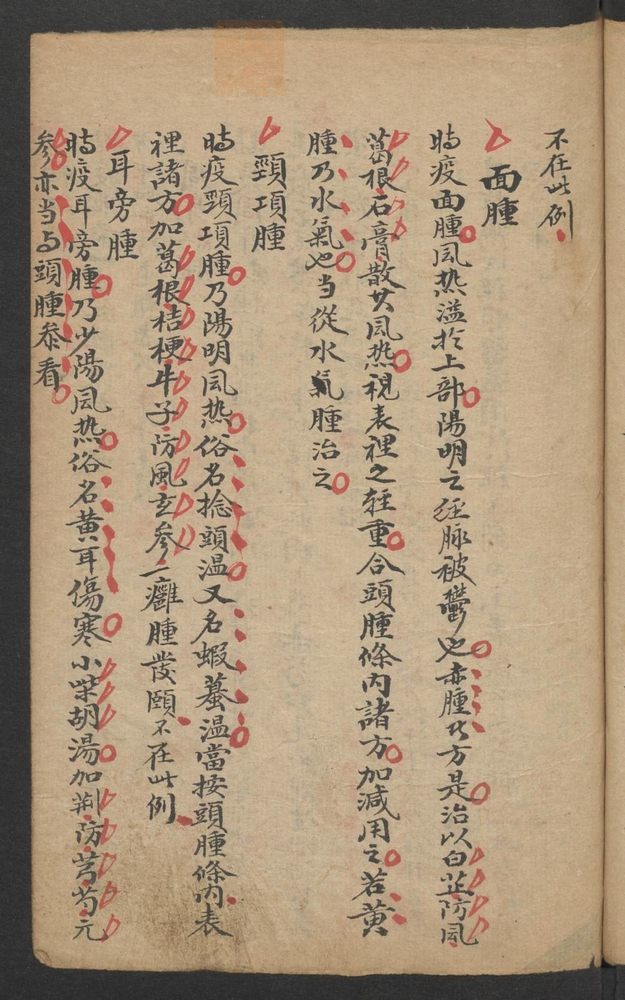 不在此例
面腫
時疫面腫風热溢於上部陽明之經脉被鬱也赤腫者方是治以白芷防風
葛根石膏散其風热視表裡之輕重合頭腫條内諸方加減用之若黄
腫乃水氣也当從水氣腫治之
頸項腫
時疫頸項腫乃陽明風热俗名捻頭温又名蝦蟇温當按頭腫條内表
裡諸方加葛根桔梗牛子防風玄参癰腫發頤不在此例
耳旁腫
時疫耳旁腫乃少陽風热俗名黄耳傷寒小柴胡湯加荆防芎芍元
参亦当与頭腫叅看